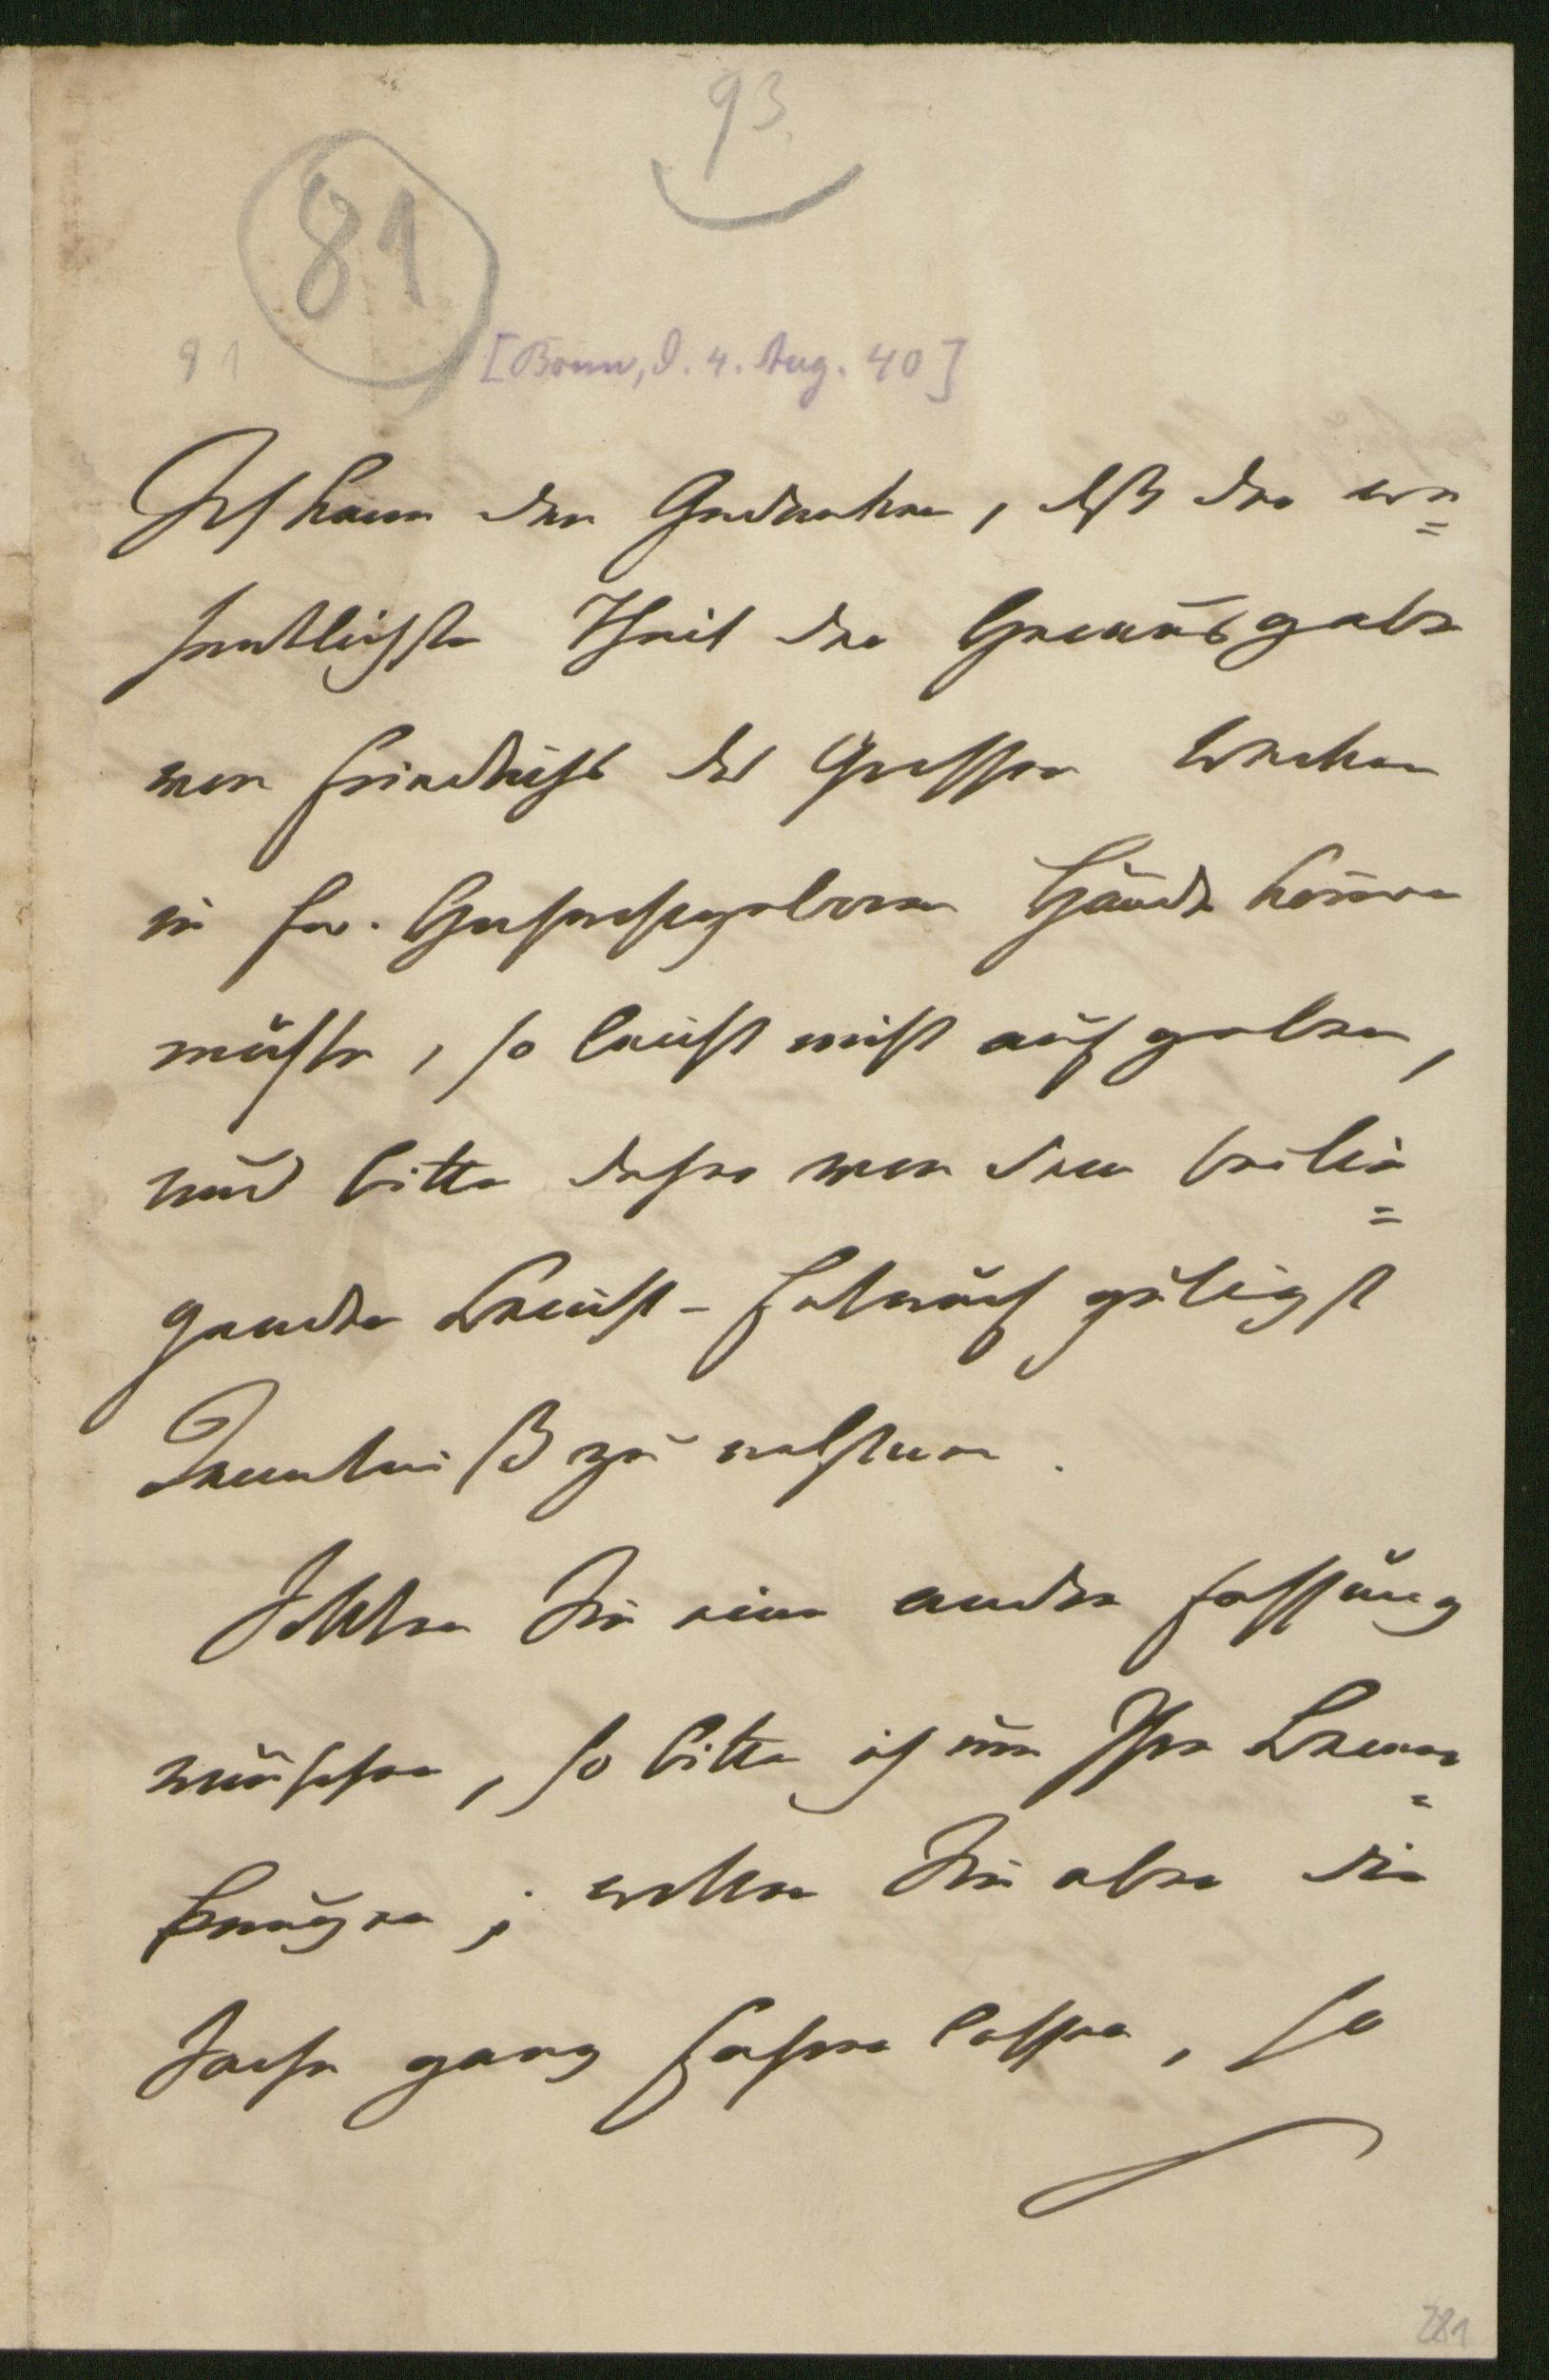 93
81
91 [Bonn, d. 4. Aug. 40]
Ich kann den Gedanken, daß der we=
sentlichste Theil der Herausgabe
von Friedrichs des Großen Werken
in Ew. Hochwohlgeboren Hände kommen
müsse, so leicht nicht aufgeben,
und bitte daher von dem beilie=
genden Bericht-Entwurf gütigst
Kenntniß zu nehmen.
Sollten Sie eine andre Fassung
wünschen, so bitte ich um Ihre Bemer=
kungen; wollen Sie aber die
Sache ganz fahren lassen, so
281